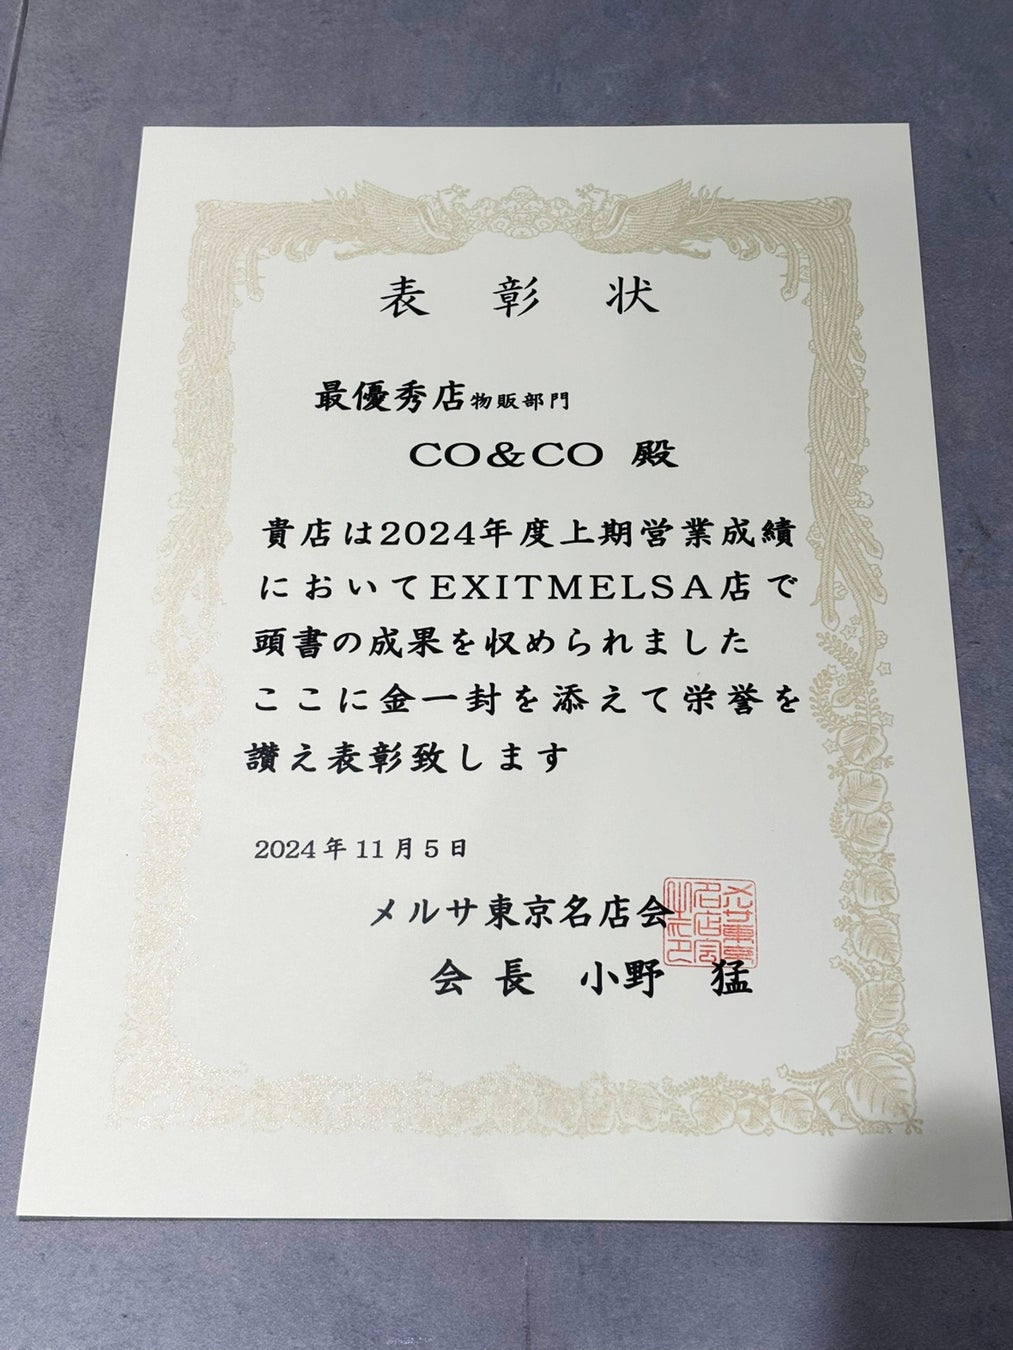 表彰状
最優秀店物販部門
CO&CO 殿
貴店は2024年度上期営業成績
においてEXITMELSA店で
頭書の成果を収められました
ここに金一封を添えて栄誉を
讃え表彰致します
2024年11月5日
メルサ東京名店会
会長 小野 猛